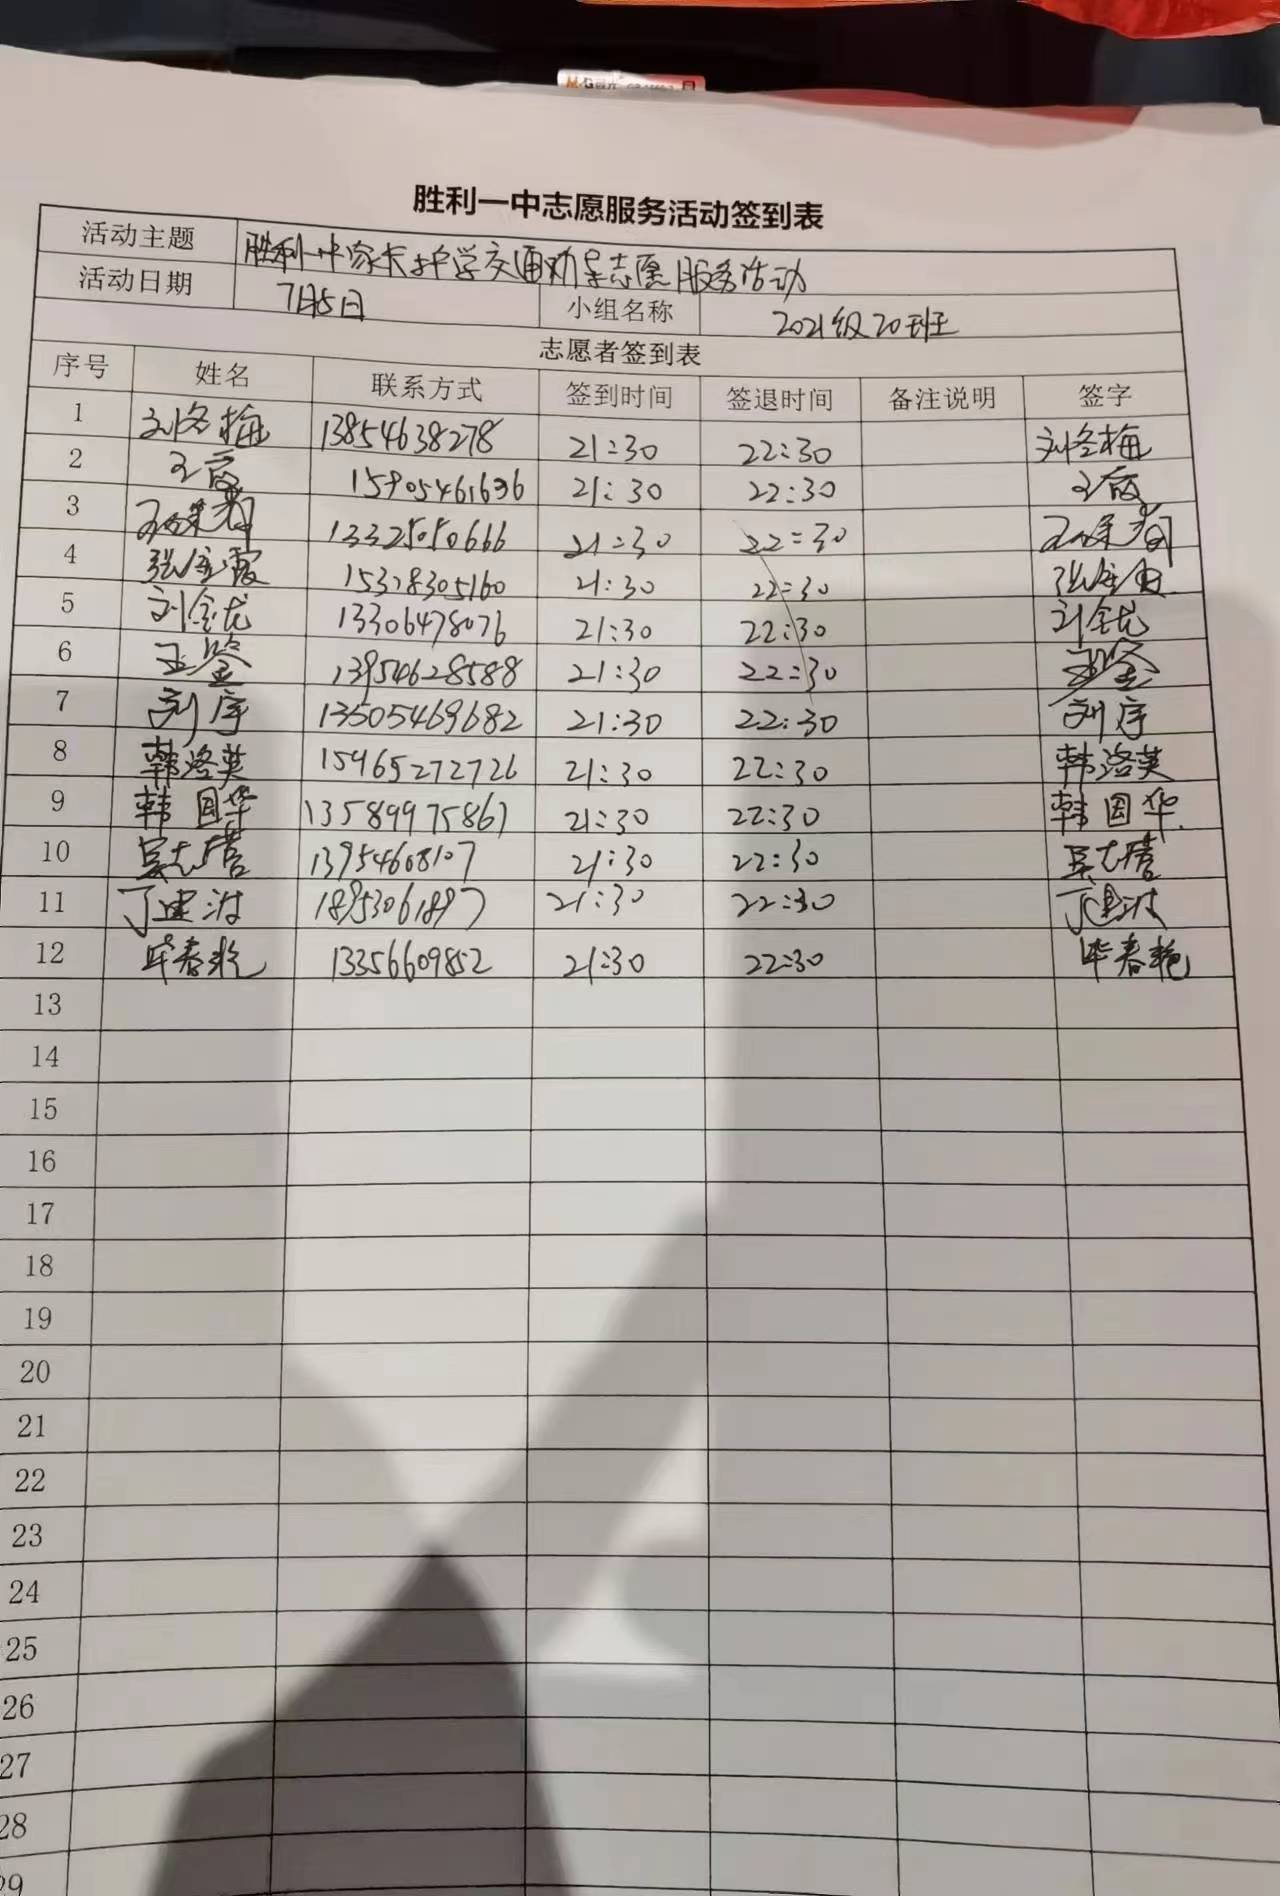 胜利一中志愿服务活动签到表
活动主题 胜利一中家长护学交通劝导志愿服务活动
活动日期 7月5日 小组名称 2021级20班
志愿者签到表
序号 姓名 联系方式 签到时间 签退时间 备注说明 签字
1 刘冬梅 13854638278 21:30 22:30 刘冬梅
2 15905461696 21:30 22:30
3 13325050666 21:30 22:30
4 张金霞 15328305160 21:30 22:30 张金霞
5 刘金龙 13306478076 21:30 22:30 刘金龙
6 王鉴 13954628588 21:30 22:30
7 刘序 13505469682 21:30 22:30 刘序
8 韩洛英 15965272726 21:30 22:30 韩洛英
9 韩国华 13589975867 21:30 22:30 韩国华
10 13954608107 21:30 22:30
11 丁建波 18953061897 21:30 22:30 丁建波
12 毕春艳 13356609852 21:30 22:30 毕春艳
13
14
15
16
17
18
19
20
21
22
23
24
25
26
27
28
29